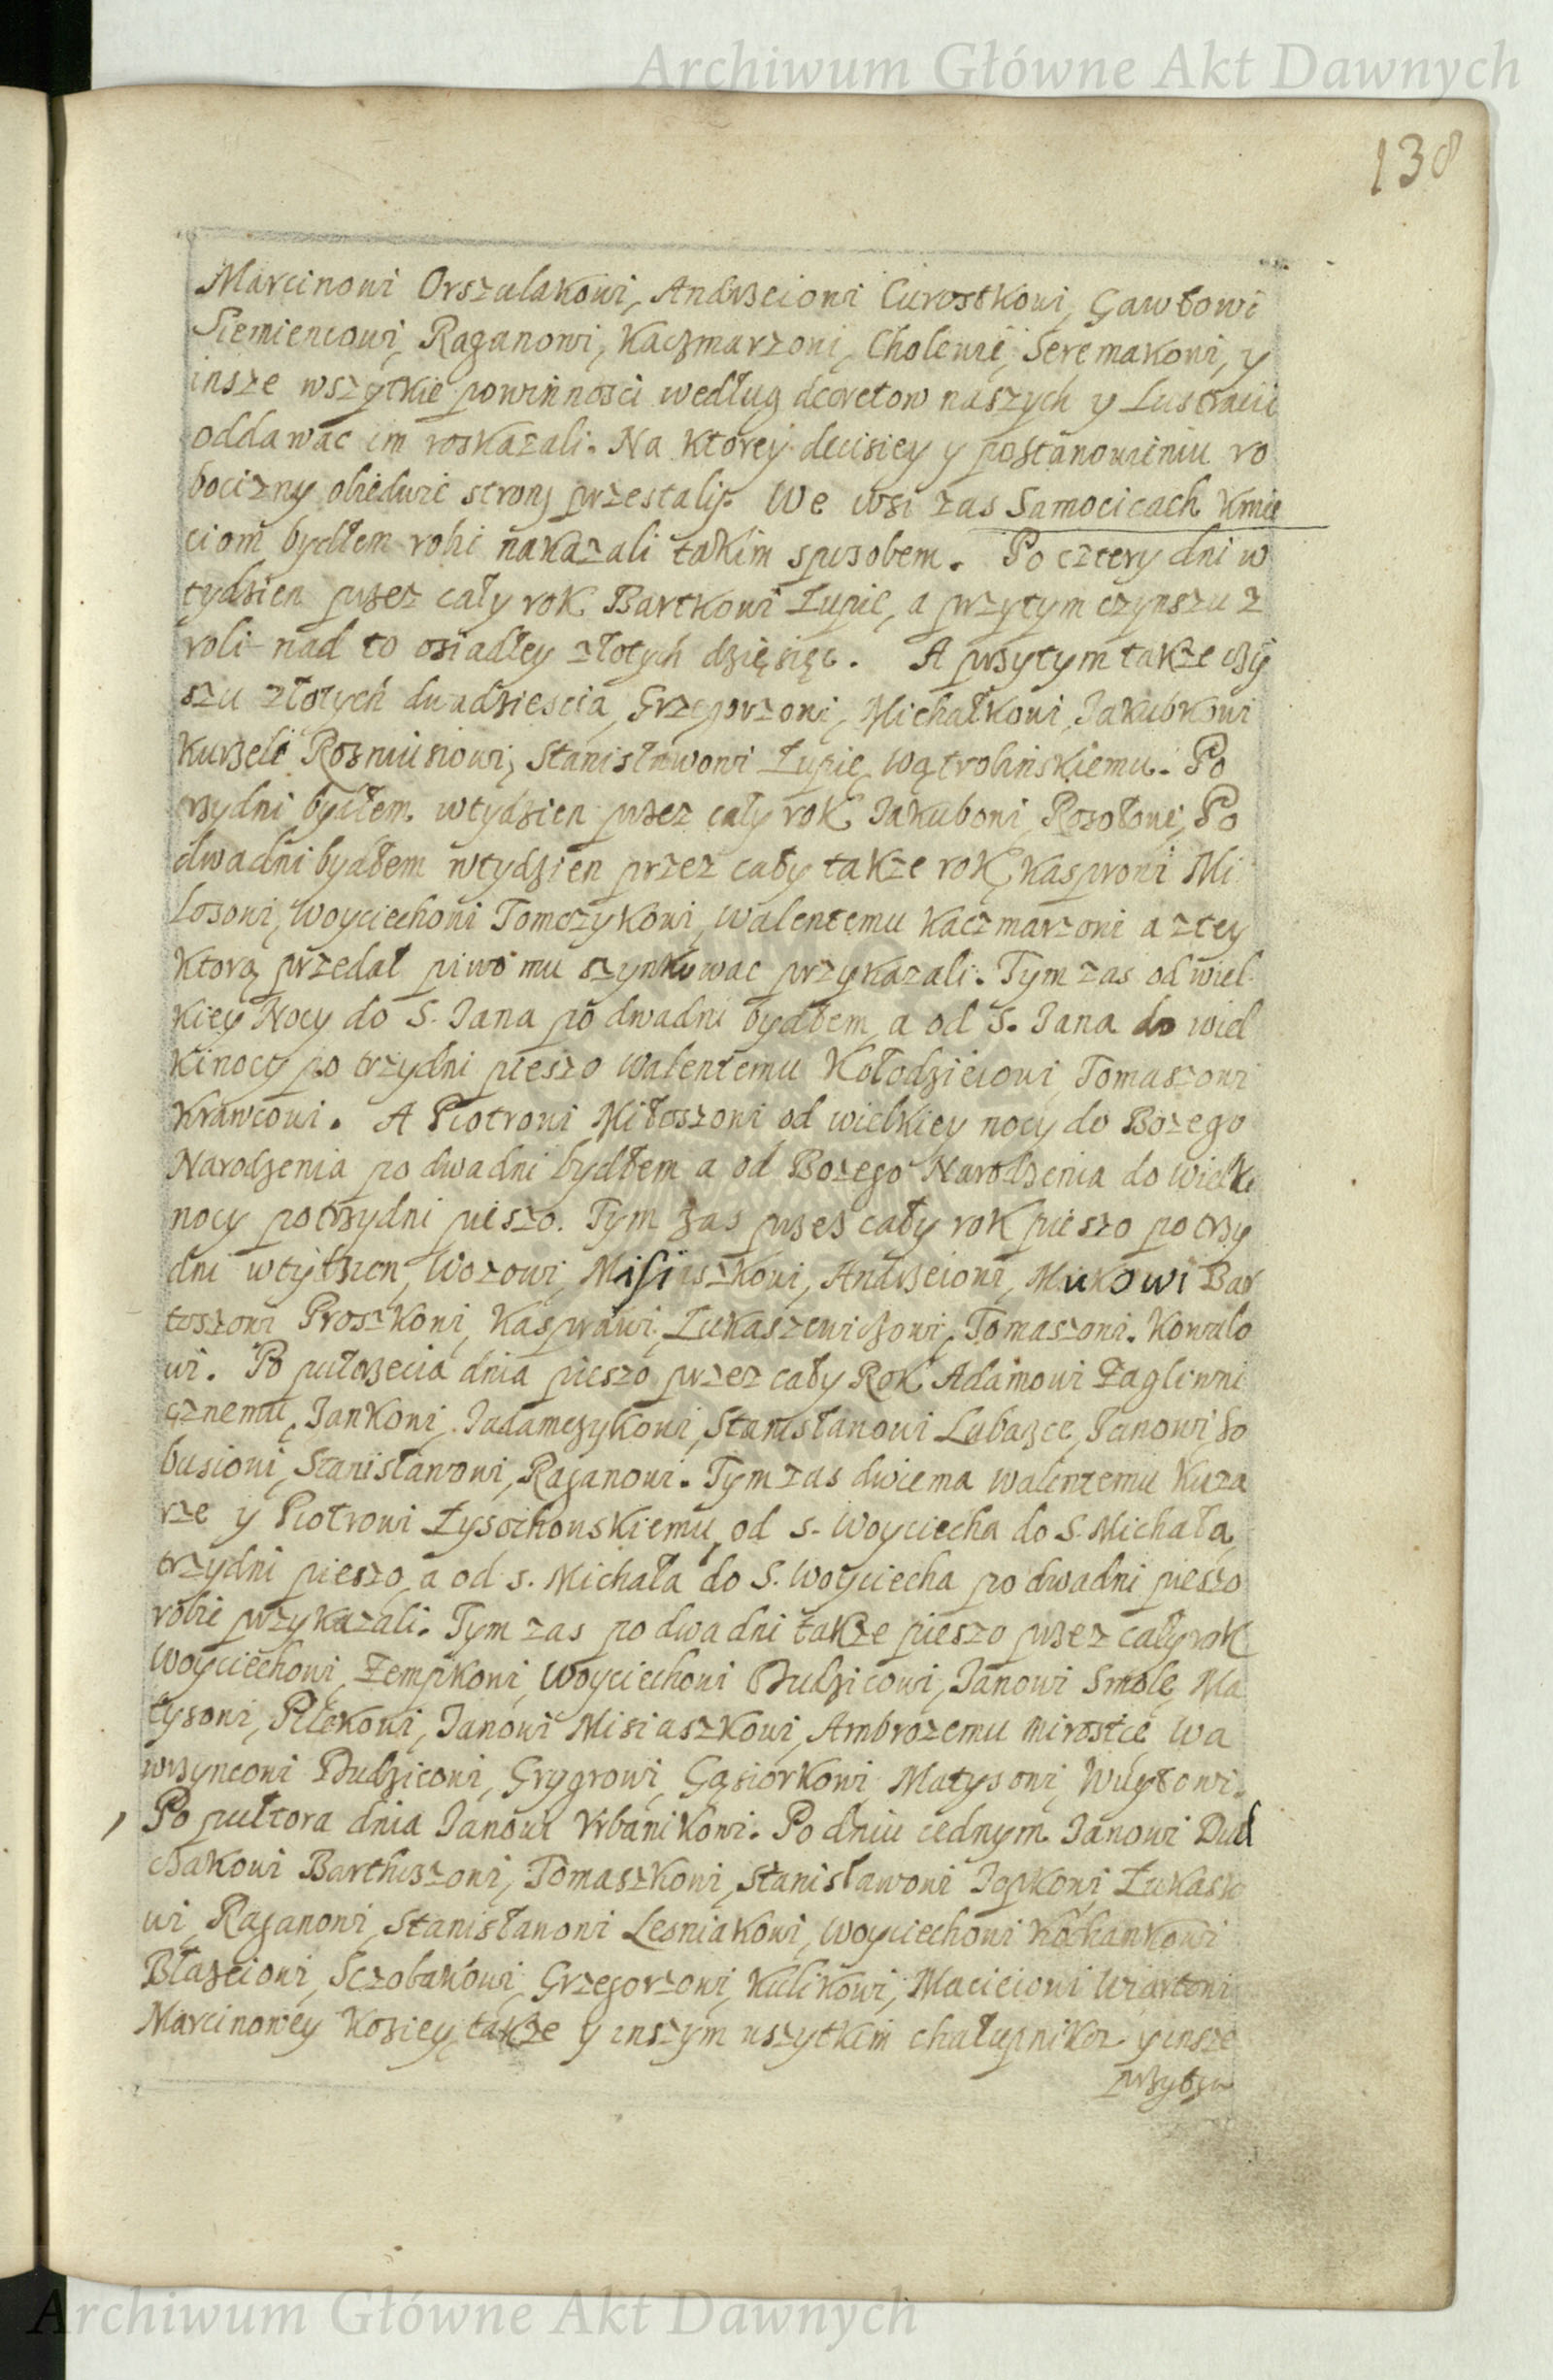 Archiwum Główne Akt Dawnych
138
Marcinowi Orszulakowi, Andrzeiowi Curostkowi, Gawłowi
Siemiencowi, Raganowi, Kaczmarzowi, Cholewie, Seremakowi, y
insze wszytkie powinnosci według decretow naszych y Lustraciÿ
oddawac im roskazali. Na ktorey decisiey y postanowieniu ro
bocizny obiedwie strony przestały. We wsi zas Samocicach Kmie
ciom bydłem robic nakazali takim sposobem. Po cztery dni w
tydzien przez cały rok Bartkowi Łupie, a przytym czynszu z
roli nad to osiadłey złotych dzięsięc. A przytym także czÿ
szu złotych dwadziescia, Grzegorzowi, Michałkowi, Jakubkowi
Kurzeli Rosmusiowi, Stanisławowi Łupie, Wątrobinskiemu. Po
trzydni bydłem wtydzien przez cały rok Jakubowi, Rosołowi, Po
dwadni bydłem wtydzien przez cały także rok, Kasprowi Mi
losowi, Woyciechowi Tomczykowi, Walentemu Kaczmarzowi a z tey
ktorą przedał piwo mu szynkowac przykazali. Tym zas od wiel
kiey Nocy do S. Jana po dwadni bydłem, a od S. Jana do wiel
kinocy po trzydni pieszo Walentemu Kołodzieiowi, Tomaszowi
Krawcowi. A Piotrowi Miłoszowi od wielkiey nocy do Bozego
Narodzenia po dwadni bydłem a od Bozego Narodzenia do wielki
nocy potrzydni pieszo. Tym zas przez cały rok pieszo po trzy
dni wtydzien, Wozowi, Misiaszkowi, Andrzeiowi, Mikowi Bar
toszowi Proszkowi, Kasprowi, Łukaszewiczowi, Tomaszowi. Kowalo
wi. Po pułtrzecia dnia pieszo przez cały Rok Adamowi Zagliwni
cznemu, Jankowi, Jadamczykowi, Stanisławowi Lubaszce, Janowi So
busiowi, Stanisławowi, Raganowi. Tym zas dwiema Walentemu Kuza
rze y Piotrowi Łysochonskiemu, od S. Woyciecha do S. Michała,
trzydni pieszo, a od S. Michała do S. Woyciecha po dwadni pieszo
robic przykazali. Tym zas po dwa dni także pieszo przez cały rok
Woyciechowi, Zempkowi, Woyciechowi Dudzicowi, Janowi Smole, Ma
tysowi, Pilekowi, Janowi Misiaszkowi, Ambrozemu Mirostce, Wa
wrzyncowi Dudzicowi, Grygrowi, Gąsiorkowi, Matysowi, Wuytowi.
Po pułtora dnia Janowi Vrbanikowi. Po dniu iednym. Janowi Dud
czakowi Barthuszowi, Tomaszkowi, Stanisławowi Jopkowi, Łukaszo
wi, Raganowi, Stanisławowi Lesniakowi, Woyciechowi Kochankowi
Błazeiowi, Sczobakowi, Grzegorzowi, Kulikowi, Macieiowi Wiartowi
Marcinowey Kosiey, także y inszym wszytkim chałupnikom y insze
Archiwum Główne Akt Dawnych